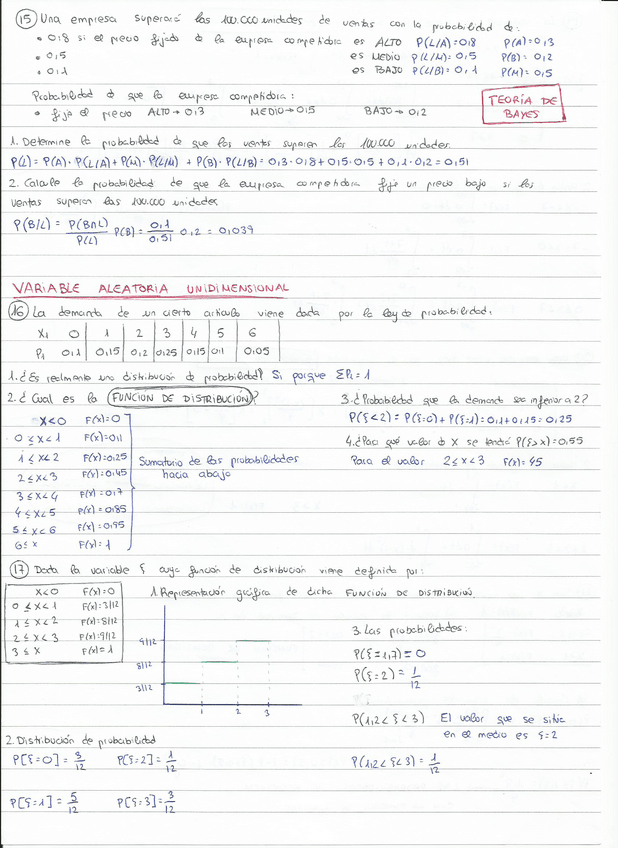 15 Una empresa superará las 100.000 unidades de ventas con la probabilidad de:
• 0,8 si el precio fijado x la empresa competidora es ALTO P(L/A)=0,8 P(A)=0,3
• 0,5 es MEDIO P(L/M)=0,5 P(B)=0,2
• 0,1 es BAJO P(L/B)=0,1 P(M)=0,5
Probabilidad d que la empresa competidora:
• fije el precio ALTO→0,3 MEDIO→0,5 BAJO→0,2
TEORÍA DE BAYES
1. Determine la probabilidad de que las ventas superen las 100.000 unidades.
P(L)= P(A)·P(L/A)+P(M)·P(L/M) + P(B)·P(L/B)= 0,3·0,8+0,5·0,5+0,1·0,2=0,51
2. Calcule la probabilidad de que la empresa competidora fije un precio bajo si las
ventas superan las 100.000 unidades
P(B/L)= P(B∩L)/P(L) P(B)= 0,1/0,51 0,2=0,039
VARIABLE ALEATORIA UNIDIMENSIONAL
16 La demanda de un cierto artículo viene dada por la ley de probabilidad:
Xi 0 1 2 3 4 5 6
Pi 0,1 0,15 0,2 0,25 0,15 0,1 0,05
1. ¿Es realmente una distribución de probabilidad? Si porque ΣPi=1
2. ¿Cual es la FUNCIÓN DE DISTRIBUCIÓN?
X<0 F(x)=0
0≤x<1 F(x)=0,1
1≤x<2 F(x)=0,25
2≤x<3 F(x)=0,45
3≤x<4 F(x)=0,7
4≤x<5 F(x)=0,85
5≤x<6 F(x)=0,95
6≤x F(x)=1
Sumatorio de las probabilidades
hacia abajo
3. ¿Probabilidad que la demanda sea inferior a 2?
P(ξ<2)= P(ξ=0)+P(ξ=1)=0,1+0,15=0,25
4. ¿Para qué valor d X se tendrá P(ξ>x)=0,55
Para el valor 2≤x<3 F(x)=45
17 Dada la variable ξ cuya función de distribución viene definida por:
X<0 F(x)=0
0≤x<1 F(x)=3/12
1≤x<2 F(x)=8/12
2≤x<3 F(x)=9/12
3≤x F(x)=1
1. Representación gráfica de dicha FUNCIÓN DE DISTRIBUCIÓN.
9/12
8/12
3/12
1 2 3
3. Las probabilidades:
P(ξ=1,7)=0
P(ξ=2)= 1/12
P(1,2<ξ<3) El valor que se sitúa
en el medio es ξ=2
P(1,2<ξ<3)= 1/12
2. Distribución de probabilidad
P[ξ=0]= 3/12 P[ξ=2]= 1/12
P[ξ=1]= 5/12 P[ξ=3]= 3/12